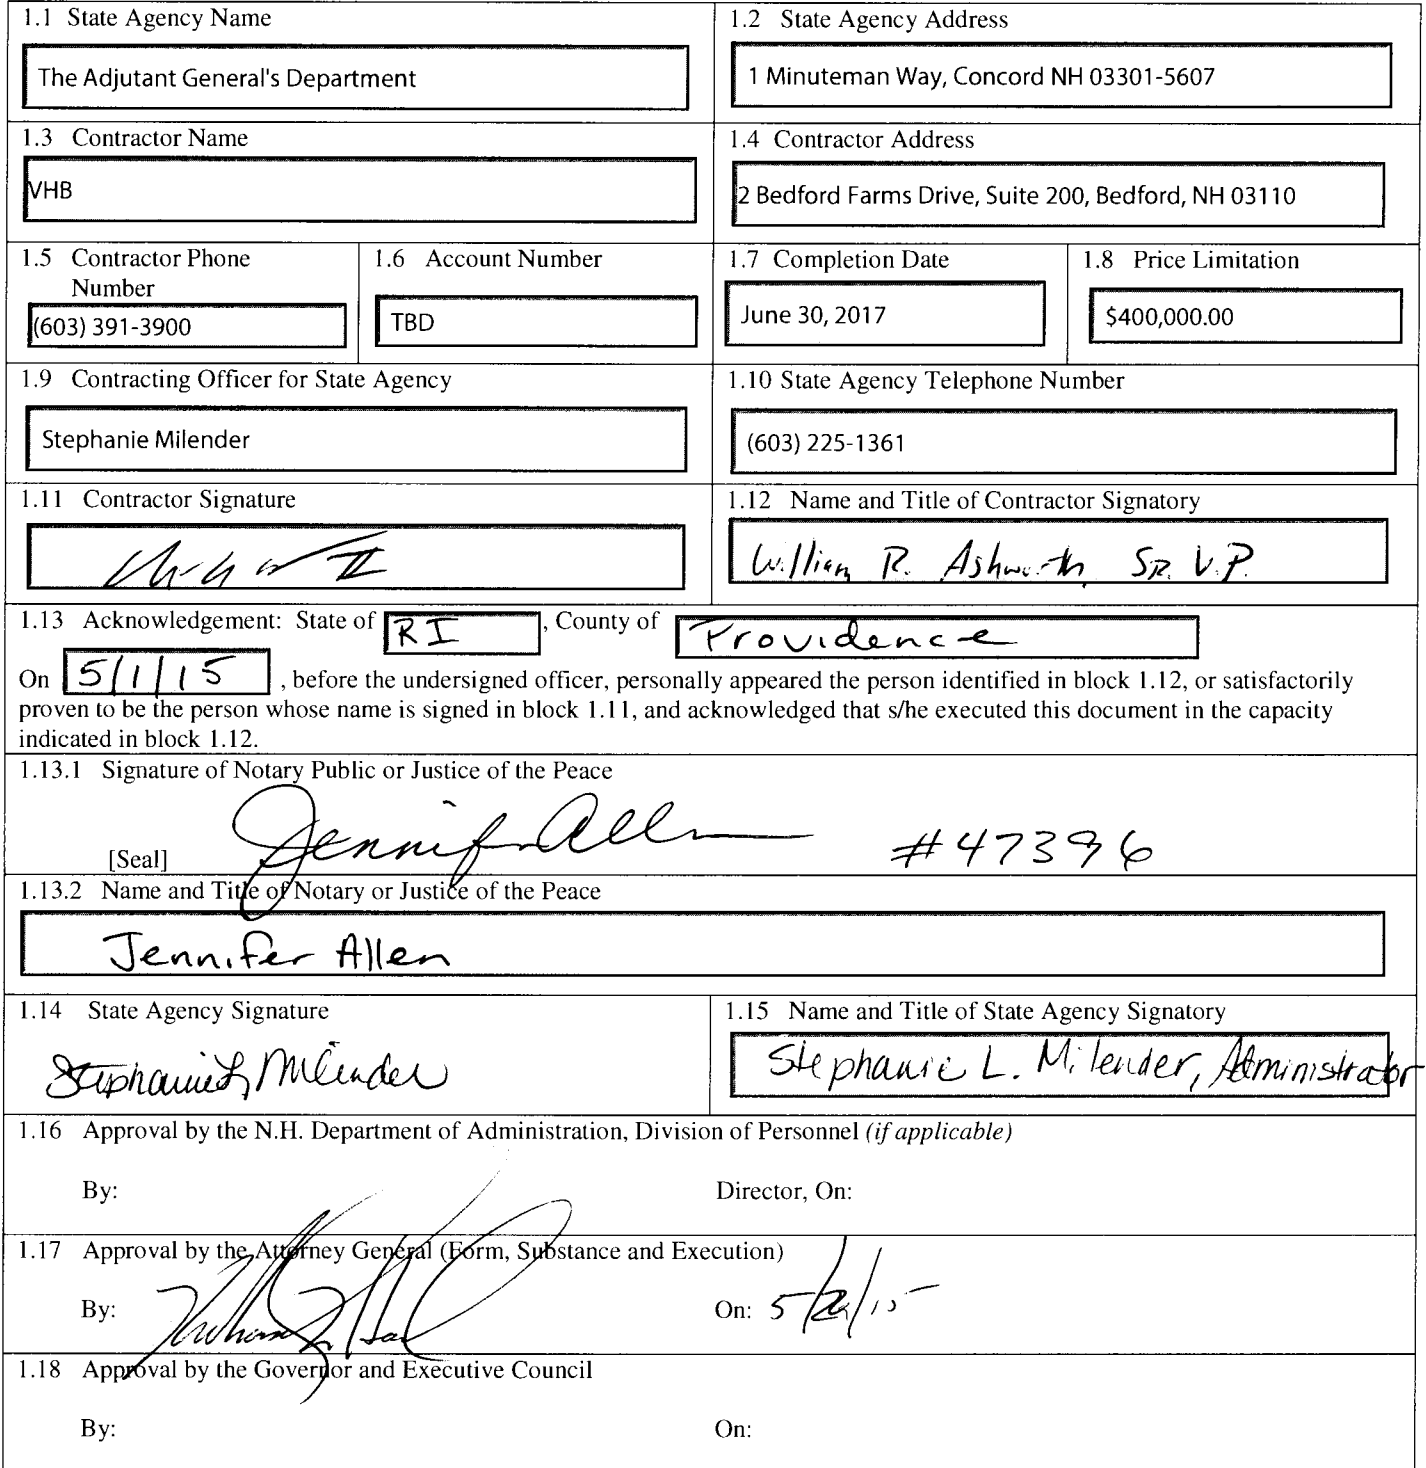 1.1 State Agency Name
The Adjutant General's Department
1.2 State Agency Address
1 Minuteman Way, Concord NH 03301-5607
1.3 Contractor Name
VHB
1.4 Contractor Address
2 Bedford Farms Drive, Suite 200, Bedford, NH 03110
1.5 Contractor Phone
Number
(603) 391-3900
1.6 Account Number
TBD
1.7 Completion Date
June 30, 2017
1.8 Price Limitation
$400,000.00
1.9 Contracting Officer for State Agency
Stephanie Milender
1.10 State Agency Telephone Number
(603) 225-1361
1.11 Contractor Signature
1.12 Name and Title of Contractor Signatory
William R. Ashworth, SR. V.P.
1.13 Acknowledgement: State of RI , County of Providence
On 5/1/15 , before the undersigned officer, personally appeared the person identified in block 1.12, or satisfactorily
proven to be the person whose name is signed in block 1.11, and acknowledged that s/he executed this document in the capacity
indicated in block 1.12.
1.13.1 Signature of Notary Public or Justice of the Peace
Jennifer Allen #47396
[Seal]
1.13.2 Name and Title of Notary or Justice of the Peace
Jennifer Allen
1.14 State Agency Signature
Stephanie L Milender
1.15 Name and Title of State Agency Signatory
Stephanie L. Milender, Administrator
1.16 Approval by the N.H. Department of Administration, Division of Personnel (if applicable)
By: Director, On:
1.17 Approval by the Attorney General (Form, Substance and Execution)
By: On:
1.18 Approval by the Governor and Executive Council
By: On: